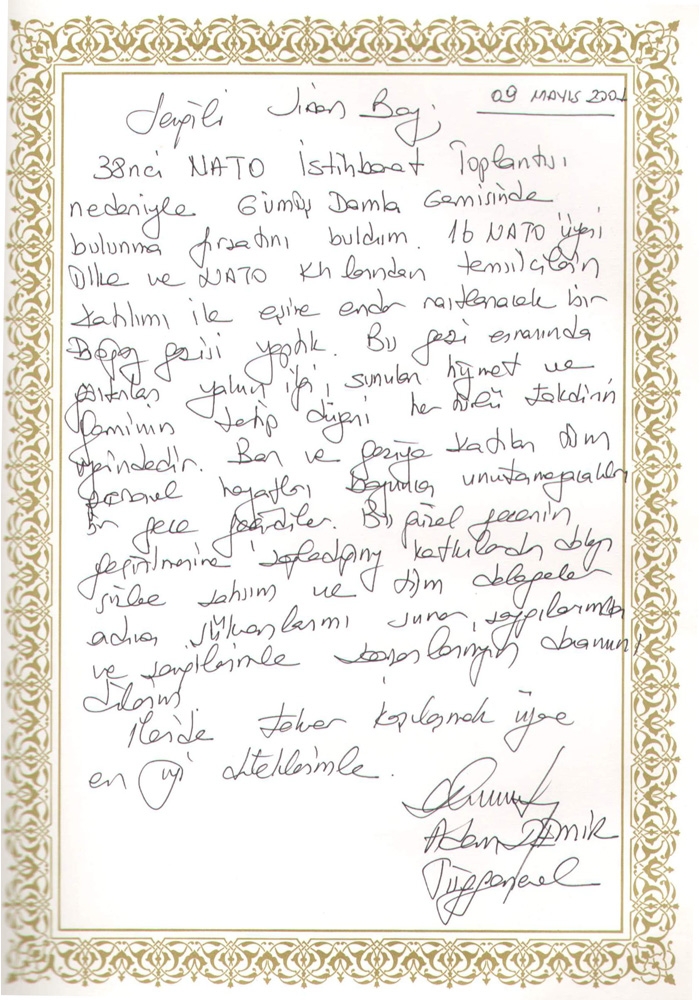 09 MAYIS 2001
Sevgili Sinan Bey;
38nci NATO İstihbarat Toplantısı
nedeniyle Gümüş Damla Gemisinde
bulunma fırsatını buldum. 16 NATO üyesi
Ülke ve NATO Kh larından temsilcilerin
katılımı ile eşine ender rastlanacak bir
Boğaz gezisi yaptık. Bu gezi esnasında
gösterilen yakın ilgi, sunulan hizmet ve
Geminin tertip düzeni her türlü takdirin
üzerindedir. Ben ve geziye katılan tüm
personel hayatları boyunca unutamayacakları
bir gece geçirdiler. Bu güzel gecenin
geçirilmesine sağladığınız katkılardan dolayı
sizlere şahsım ve tüm delegeler
adına şükranlarımı sunar, saygılarımla
ve sevgilerimle başarılarınızın devamını
dilerim.
İleride tekrar karşılaşmak üzere
en iyi dileklerimle.
DEMİR
Tuğgeneral